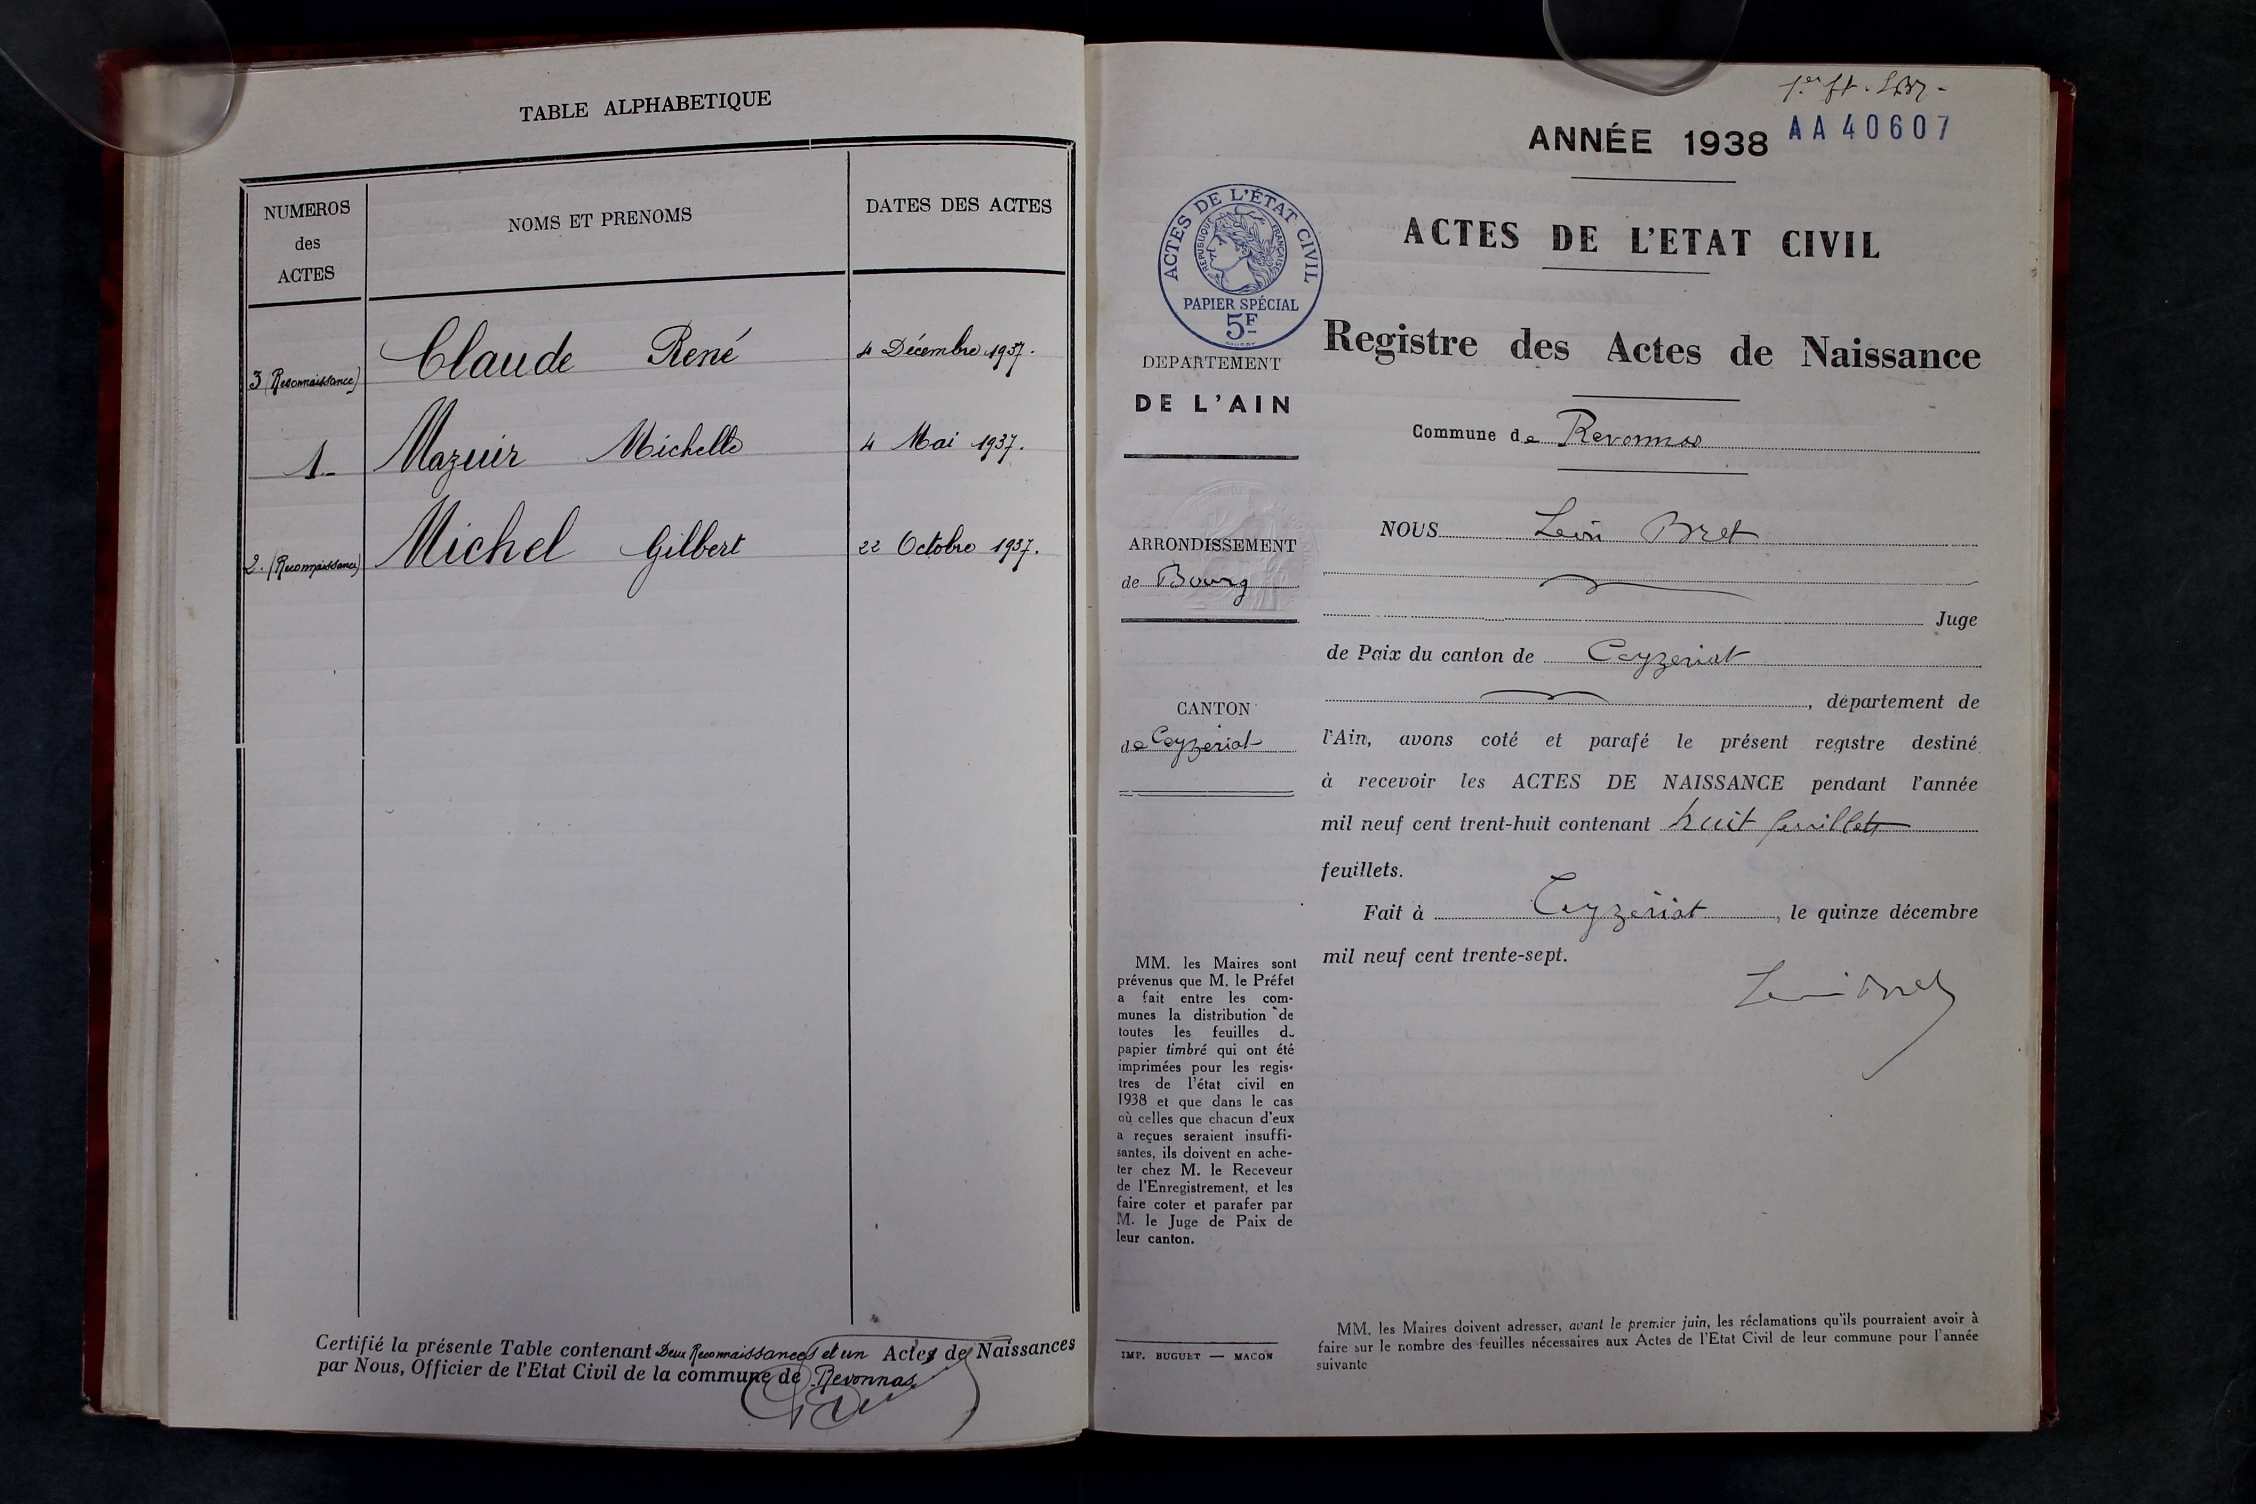 TABLE ALPHABETIQUE
NUMEROS
des
ACTES
NOMS ET PRENOMS
DATES DES ACTES
3 (Reconnaissance) Claude René 4 Décembre 1937.
1 Mazuir Michelle 4 Mai 1937.
2. (Reconnaissance) Michel Gilbert 22 Octobre 1937.
Certifié la présente Table contenant Deux Reconnaissances et un Actes de Naissances
par Nous, Officier de l'Etat Civil de la commune de Revonnas
ANNÉE 1938
AA 40607
ACTES DE L'ETAT CIVIL
ACTES DE L'ÉTAT CIVIL
REPUBLIQUE FRANÇAISE
PAPIER SPÉCIAL
5F
Registre des Actes de Naissance
DEPARTEMENT
DE L'AIN
Commune de Revonnas
NOUS Léon Bret
ARRONDISSEMENT
de Bourg
Juge
de Paix du canton de Ceyzeriat
, département de
CANTON
de Ceyzeriat
l'Ain, avons coté et parafé le présent registre destiné
à recevoir les ACTES DE NAISSANCE pendant l'année
mil neuf cent trent-huit contenant huit feuillets
feuillets.
Fait à Ceyzeriat, le quinze décembre
mil neuf cent trente-sept.
MM. les Maires sont
prévenus que M. le Préfet
a fait entre les com-
munes la distribution de
toutes les feuilles d
papier timbré qui ont été
imprimées pour les regis-
tres de l'état civil en
1938 et que dans le cas
où celles que chacun d'eux
a reçues seraient insuffi-
santes, ils doivent en ache-
ter chez M. le Receveur
de l'Enregistrement, et les
faire coter et parafer par
M. le Juge de Paix de
leur canton.
IMP. BUGUET — MACON
MM. les Maires doivent adresser, avant le premier juin, les réclamations qu'ils pourraient avoir à
faire sur le nombre des feuilles nécessaires aux Actes de l'Etat Civil de leur commune pour l'année
suivante